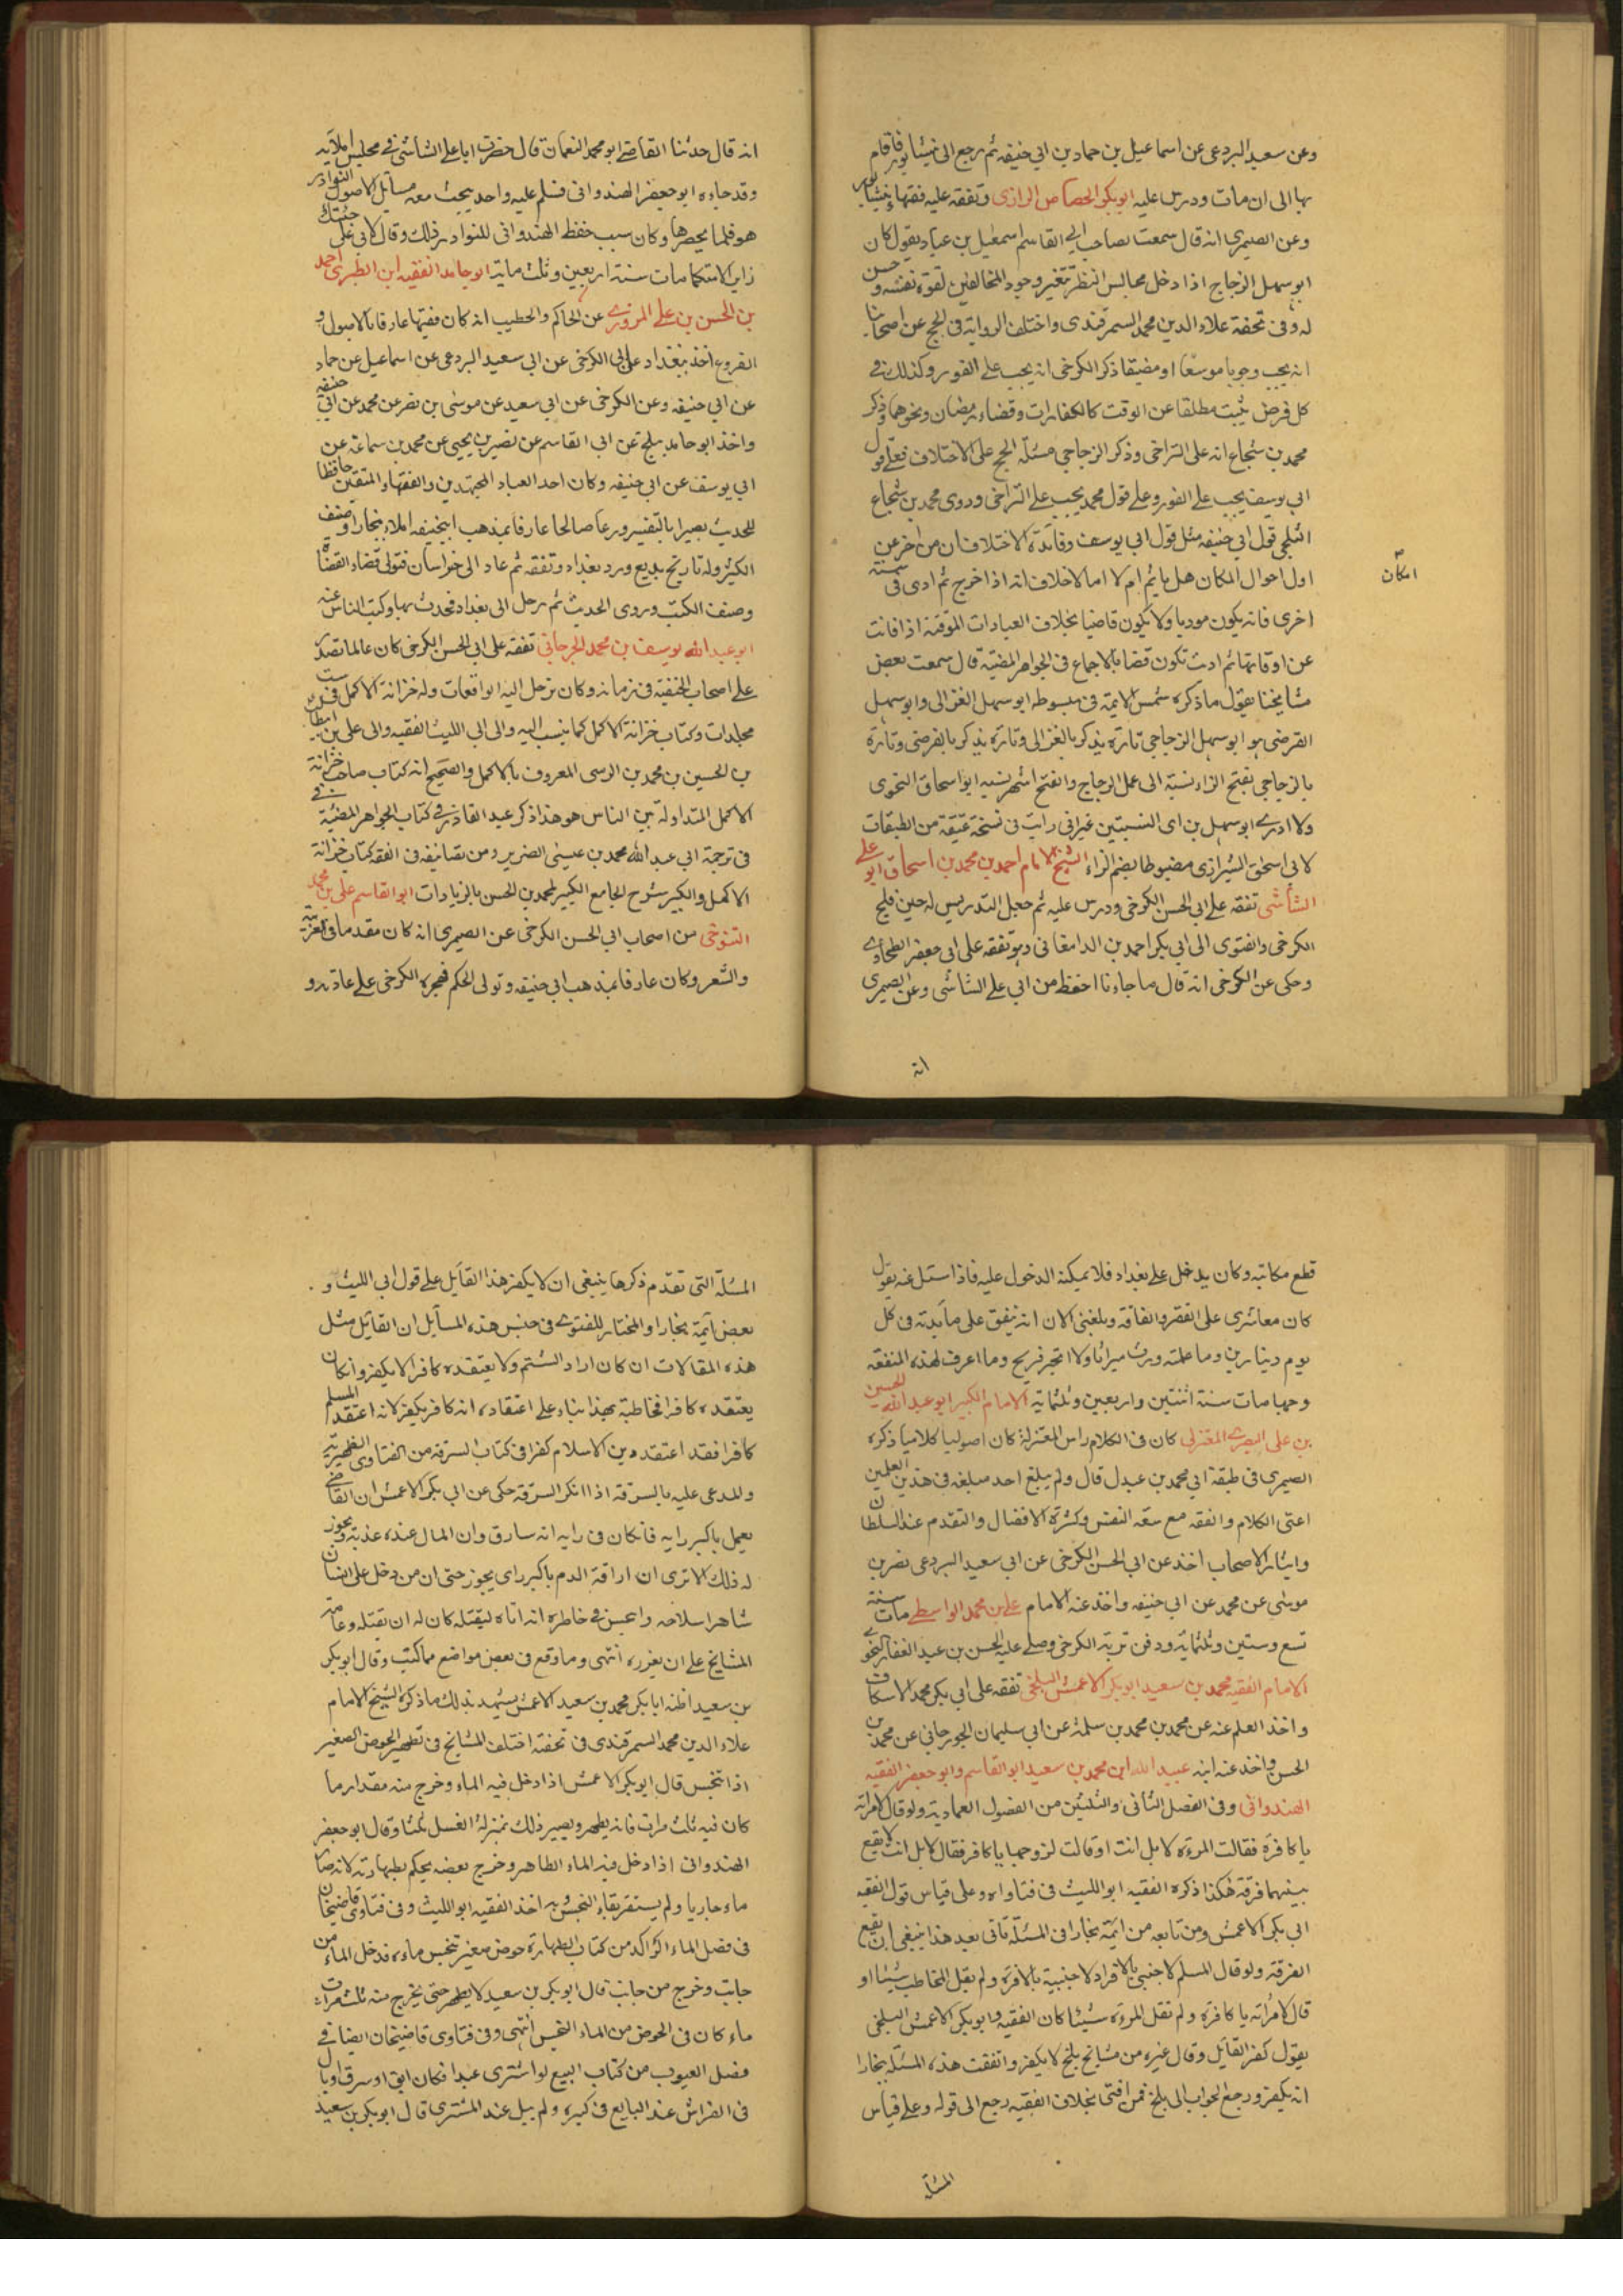 وعن سعيد البردعى عن اسماعيل بن حماد بن ابى حنيفه ثم رجع الى نيشابور فاقام
بها الى ان مات ودرس عليه ابو بكر الجصاص الرازى وتفقه عليه فقهاء نيشابور
وعن الصيمرى انه قال سمعت الصاحب ابى القاسم اسمعيل بن عباد يقول كان
ابو سهل الزجاج اذا دخل مجالس النظر تتغير وجوه المخالفين لقوة نفسه وحسن
له وفى تحفة علاء الدين محمد السمرقندى واختلف الرواية فى الحج عن اصحابنا
انه يجب وجوبا موسعا او مضيقا ذكر الكرخى انه يجب على الفور وكذلك فى
كل فرض يثبت مطلقا عن الوقت كالكفارات وقضاء رمضان ونحوهما وذكر
محمد بن شجاع انه على التراخى وذكر الزجاجى مسئلة الحج على الاختلاف فعلى قول
ابى يوسف يجب على الفور وعلى قول محمد يجب على التراخى وروى محمد بن شجاع
الثلجى قول ابى حنيفه مثل قول ابى يوسف وفائدة الاختلاف ان من اخر عن
اول احوال المكان هل ياثم ام لا اما لا خلاف انه اذا اخرج ثم ادى فى سنة
امكان
اخرى فانه يكون موديا ولا يكون قاضيا بخلاف العبادات الموقتة اذا فاتت
عن اوقاتها ثم اديت تكون قضا بالاجماع فى الجواهر المضيّة قال سمعت بعض
مشايخنا يقول ما ذكره شمس الايمة فى مبسوطه ابو سهل الغزالى وابو سهل
الفرضى هو ابو سهل الزجاجى تارة يذكر بالغزالى وتارة يذكر بالفرضى وتارة
بالزجاجى بفتح الزاء نسبة الى عمل الزجاج والفتح اشهر نسبه ابو اسحاق النحوى
ولا ادرى ابو سهل من اى النسبتين غير انى رايت فى نسخة عتيقة من الطبقات
لابى اسحق الشيرازى مضبوطا بضم الزاء الشيخ الامام احمد بن محمد بن اسحاق ابو على
الشاشى تفقه على ابى الحسن الكرخى ودرس عليه ثم جعل التدريس له حين فلج
الكرخى والفتوى الى ابى بكر احمد بن الدامغانى وهو تفقه على ابى جعفر الطحاوى
وحكى عن الكرخى انه قال ما جاءنا احفظ من ابى على الشاشى وعن الصيمرى
انه
انه قال حدثنا القاضى ابو محمد النعمان قال حضرت ابا على الشاشى فى مجلس املائه
وقد جاءه ابو جعفر الهندوانى فسلم عليه واخذ يبحث معه مسائل الاصول النوادر
هو فلما يحصرها وكان سبب حفظ الهندوانى للنوادر ذلك وقال لابى على جئتك
زاير الا متكلما مات سنة اربعين وثلث ماية ابو حامد الفقيه ابن الطبرى احمد
بن الحسن بن على المروزى عن الحاكم والخطيب انه كان فقيها عارفا بالاصول و
الفروع اخذ ببغداد على ابى الكرخى عن ابى سعيد البردعى عن اسماعيل عن حماد
عن ابى حنيفه وعن الكرخى عن ابى سعيد عن موسى بن نصر عن محمد عن ابى حنيفه
واخذ ابو حامد ببلخ عن ابى القاسم عن نصير بن يحيى عن محمد بن سماعة عن
ابى يوسف عن ابى حنيفه وكان احد العباد المجتهدين والفقهاء المتقنين حافظا
للحديث بصيرا بالتفسير ورعا صالحا عارفا بمذهب ابيحنيفه املاء ببخارا وصنف
الكثير وله تاريخ بديع ورد بغداد وتفقه ثم عاد الى خراسان فتولى قضاء القضاة
وصنف الكتب وروى الحديث ثم رحل الى بغداد فحدث بها وكتب الناس عنه
ابو عبد الله يوسف بن محمد الجرجانى تفقه على ابى الحسن الكرخى كان عالما تصدر
على اصحاب الحنفية فى زمانه وكان ترحل اليه الواقعات وله خزانة الاكمل فى ست
مجلدات وكتاب خزانة الاكمل كما ينسب اليه والى ابى الليث الفقيه والى على بن
بن الحسين بن محمد بن الرسى المعروف بالاكمل والصحيح انه كتاب صاحب خزانة
الاكمل المتداولة بين الناس هو هذا ذكر عبد القادر فى كتاب الجواهر المضيّة فى
فى ترجمة ابى عبد الله محمد بن عيسى الضرير ومن تصانيفه فى الفقه كتاب خزانة
الاكمل والكبير شرح الجامع الكبير لمحمد بن الحسن بالزيادات ابو القاسم على بن محمد
التنوخى من اصحاب ابى الحسن الكرخى عن الصيمرى انه كان مقدما فى العربية
والشعر وكان عارفا بمذهب ابى حنيفه وتولى الحكم فهجره الكرخى على عادته و
قطع مكاتبه وكان يدخل على بغداد فلا يمكنه الدخول عليه فاذا سئل عنه يقول
كان معاشرى على الفقر والفاقة وبلغنى الان انه ينفق على مائدته فى كل
يوم دينارين وما علمته ورث ميراثا ولا اتجر فربح وما اعرف لهذه النفقة
وجها مات سنة اثنتين واربعين وثلثماية الامام الكبير ابو عبد الله الحسين
بن على البصرى المعتزلى كان فى الكلام راس المعتزلة كان اصوليا كلاميا ذكره
الصيمرى فى طبقة ابى محمد بن عبدل قال ولم يبلغ احد مبلغه فى هذين العلمين
اعنى الكلام والفقه مع سعة النفس وكثرة الافضال والتقدم عند السلطان
وايثار الاصحاب اخذ عن ابى الحسن الكرخى عن ابى سعيد البردعى نصر بن
موسى عن محمد عن ابى حنيفه واخذ عنه الامام على بن محمد الواسطى مات سنة
تسع وستين وثلثماية ودفن تربة الكرخى وصلى عليه الحسن بن عبد الغفار النحوى
الامام الفقيه محمد بن سعيد ابو بكر الاعمش البلخى تفقه على ابى بكر محمد الاسكاف
واخذ العلم عنه عن محمد بن محمد بن سلمة عن ابى سليمان الجورجانى عن محمد بن
الحسن واخذ عنه ابنه عبيد الله ابن محمد بن سعيد ابو القاسم وابو جعفر الفقيه
الهندوانى وفى الفصل الثانى والثلثين من الفصول العمادية ولو قال لامراته
يا كافرة فقالت المرءة لا بل انت او قالت لزوجها يا كافر فقال لا بل انت لا يقع
بينهما فرقة هكذا ذكره الفقيه ابو الليث فى فتاواه وعلى قياس قول الفقيه
ابى بكر الاعمش ومن تابعه من ايمة بخارا فى المسئلة تاتى بعيد هذا ينبغى ان يقع
الفرقة ولو قال المسلم لاجنبى يا كافر او لاجنبية يا كافرة ولم يقل المخاطب شيئا او
قال لامراته يا كافرة ولم تقل المرءة شيئا كان الفقيه ابو بكر الاعمش البلخى
يقول كفر القائل وقال غيره من مشايخ بلخ لا يكفر واتفقت هذه المسئلة ببخارا
انه يكفر ورجع الجواب الى بلخ فمن افتى بخلاف الفقيه رجع الى قوله وعلى قياس
المسئلة
المسئلة التى تقدم ذكرها ينبغى ان لا يكفر هذا القائل على قول ابى الليث و
بعض ايمة بخارا والمختار للفتوى فى جنس هذه المسايل ان القائل مثل
هذه المقالات ان كان اراد الشتم ولا يعتقده كافرا لا يكفر وان كان
يعتقده كافرا فخاطبه بهذا بناء على اعتقاده انه كافر يكفر لانه اعتقد المسلم
كافرا فقد اعتقد دين الاسلام كفرا فى كتاب السرقة من الفتاوى الظهيرية
والمدعى عليه بالسرقة اذا انكر السرقة حكى عن ابى بكر الاعمش ان القاضى
يعمل باكبر رايه فان كان فى رايه انه سارق وان المال عنده عذبه ويجوز
له ذلك الا ترى ان اراقة الدم باكبر راى يجوز حتى ان من دخل على انسان
شاهرا سلاحه واعس فى خاطره انه اتاه ليقتله كان له ان يقتله وعامة
المشايخ على ان يعزره انتهى وما وقع فى بعض مواضع مما كتب وقال ابو بكر
بن سعيد اظنه ابا بكر محمد بن سعيد الاعمش يشهد بذلك ما ذكره الشيخ الامام
علاء الدين محمد السمرقندى فى تحفته اختلف المشايخ فى تطهير الحوض الصغير
اذا تنجس قال ابو بكر الاعمش اذا دخل فيه الماء وخرج منه مقدار ما
كان فيه ثلث مرات فانه يطهر ويصير ذلك بمنزلة الغسل ثلثا وقال ابو جعفر
الهندوانى اذا دخل فيه الماء الطاهر وخرج بعضه يحكم بطهارته لانه صار
ماء جاريا ولم يستقر بقاء النجس به اخذ الفقيه ابو الليث وفى فتاوى قاضيخان
فى فصل الماء الراكد من كتاب الطهارة حوض صغير تنجس ماءه فدخل الماء من
جانب وخرج من جانب قال ابو بكر بن سعيد لا يطهر حتى يخرج منه ثلث مرات
ماء كان فى الحوض من الماء النجس انتهى وفى فتاوى قاضيخان ايضا فى
فصل العيوب من كتاب البيع لو اشترى عبدا فكان ابق او سرق او بال
فى الفراش عند البايع فى كبيره ولم يبل عند المشترى قال ابو بكر بن سعيد